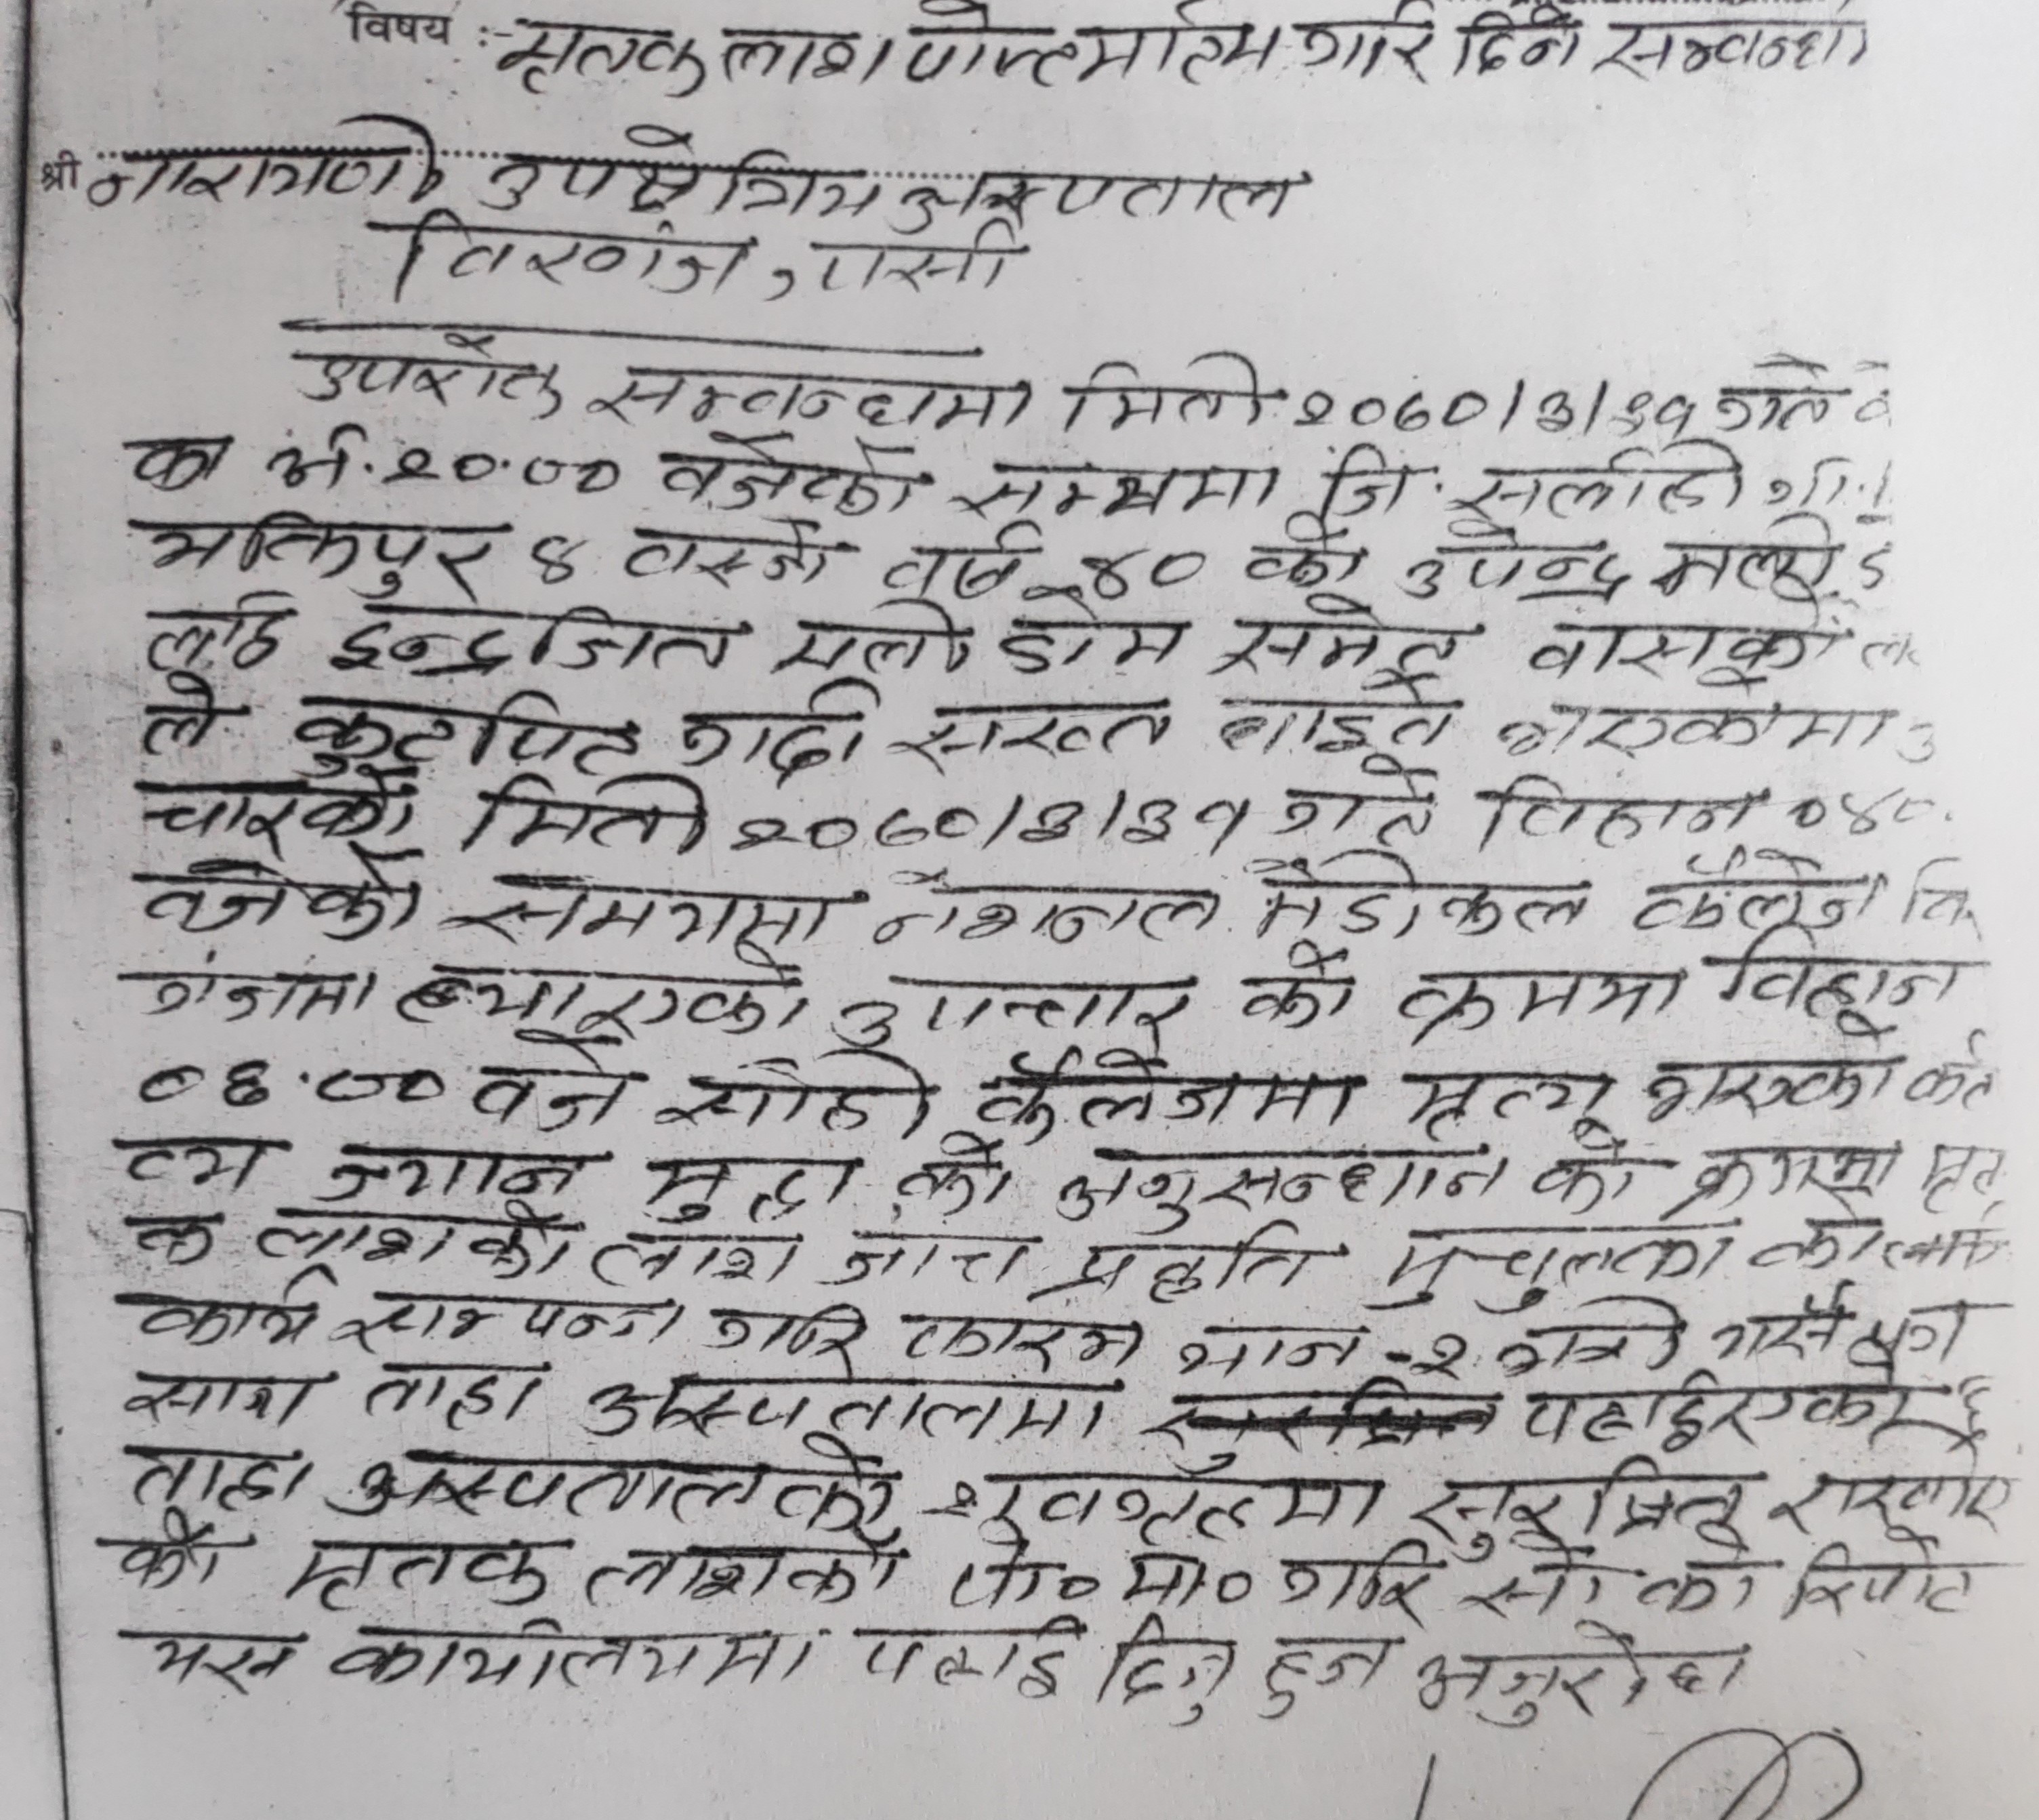 विषय :- मृतक लाश पोष्टमार्टम गरि दिने सम्वन्धमा
श्री नारायणी उपक्षेत्रिय अस्पताल
विरगंज, पर्सा
उपरोक्त सम्वन्धमा मिती २०७०।३।३१ गते
का अं. २०.०० वजेको सम्यमा जि. सर्लाही गा.
भक्तिपुर ४ वस्ने वर्ष ४० को उपेन्द्र मल्ली
लाई इन्द्रजित मली डोम समेत वासको
ले कुटपिट गर्दा सख्त घाइते भएकोमा उ
चारको मिती २०७०।३।३१ गते विहान ०४०
वजेको समयमा नेशनल मेडीकल कलेज वि
गंजमा ल्याएको उपचार को क्रममा विहान
०६.०० वजे सोही कलेजमा मृत्यू भएको कर्त
व्य ज्यान मुद्दा को अनुसन्धान को क्रममा मृत
क लाशको लाश जाच प्रकृति मुचुल्का को
कार्य सम्पन्न गरि फारम भान -२ प्रती यसै पत्र
साथ ताहा अस्पतालमा पठाईएको छ
ताहा अस्पतालको शवगृहमा सुरक्षित राखीए
को मृतक लाशको पो० मा० गरि सो को रिपोट
यस कार्यालयमा पठाई दिनु हुन अनुरोध